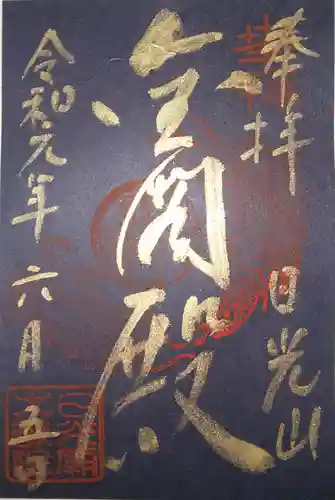 奉拝 日光山
金閣殿
令和元年六月五日